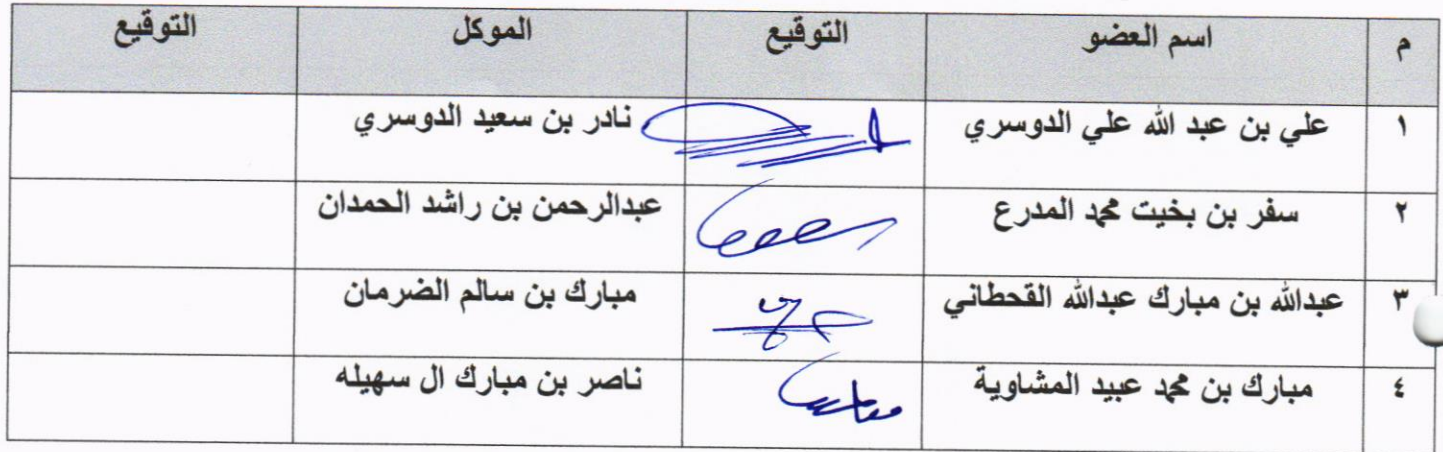 م اسم العضو التوقيع الموكل التوقيع
١ علي بن عبد الله علي الدوسري نادر بن سعيد الدوسري
٢ سفر بن بخيت محمد المدرع عبدالرحمن بن راشد الحمدان
٣ عبدالله بن مبارك عبدالله القحطاني مبارك بن سالم الضرمان
٤ مبارك بن محمد عبيد المشاوية ناصر بن مبارك ال سهيله